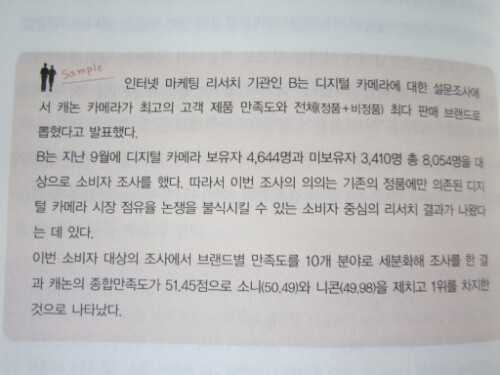 Sample
인터넷 마케팅 리서치 기관인 B는 디지털 카메라에 대한 설문조사에
서 캐논 카메라가 최고의 고객 제품 만족도와 전체(정품+비정품) 최다 판매 브랜드로
뽑혔다고 발표했다.
B는 지난 9월에 디지털 카메라 보유자 4,644명과 미보유자 3,410명 총 8,054명을 대
상으로 소비자 조사를 했다. 따라서 이번 조사의 의의는 기존의 정품에만 의존된 디지
털 카메라 시장 점유율 논쟁을 불식시킬 수 있는 소비자 중심의 리서치 결과가 나왔다
는 데 있다.
이번 소비자 대상의 조사에서 브랜드별 만족도를 10개 분야로 세분화해 조사를 한 결
과 캐논의 종합만족도가 51.45점으로 소니(50.49)와 니콘(49.98)을 제치고 1위를 차지한
것으로 나타났다.